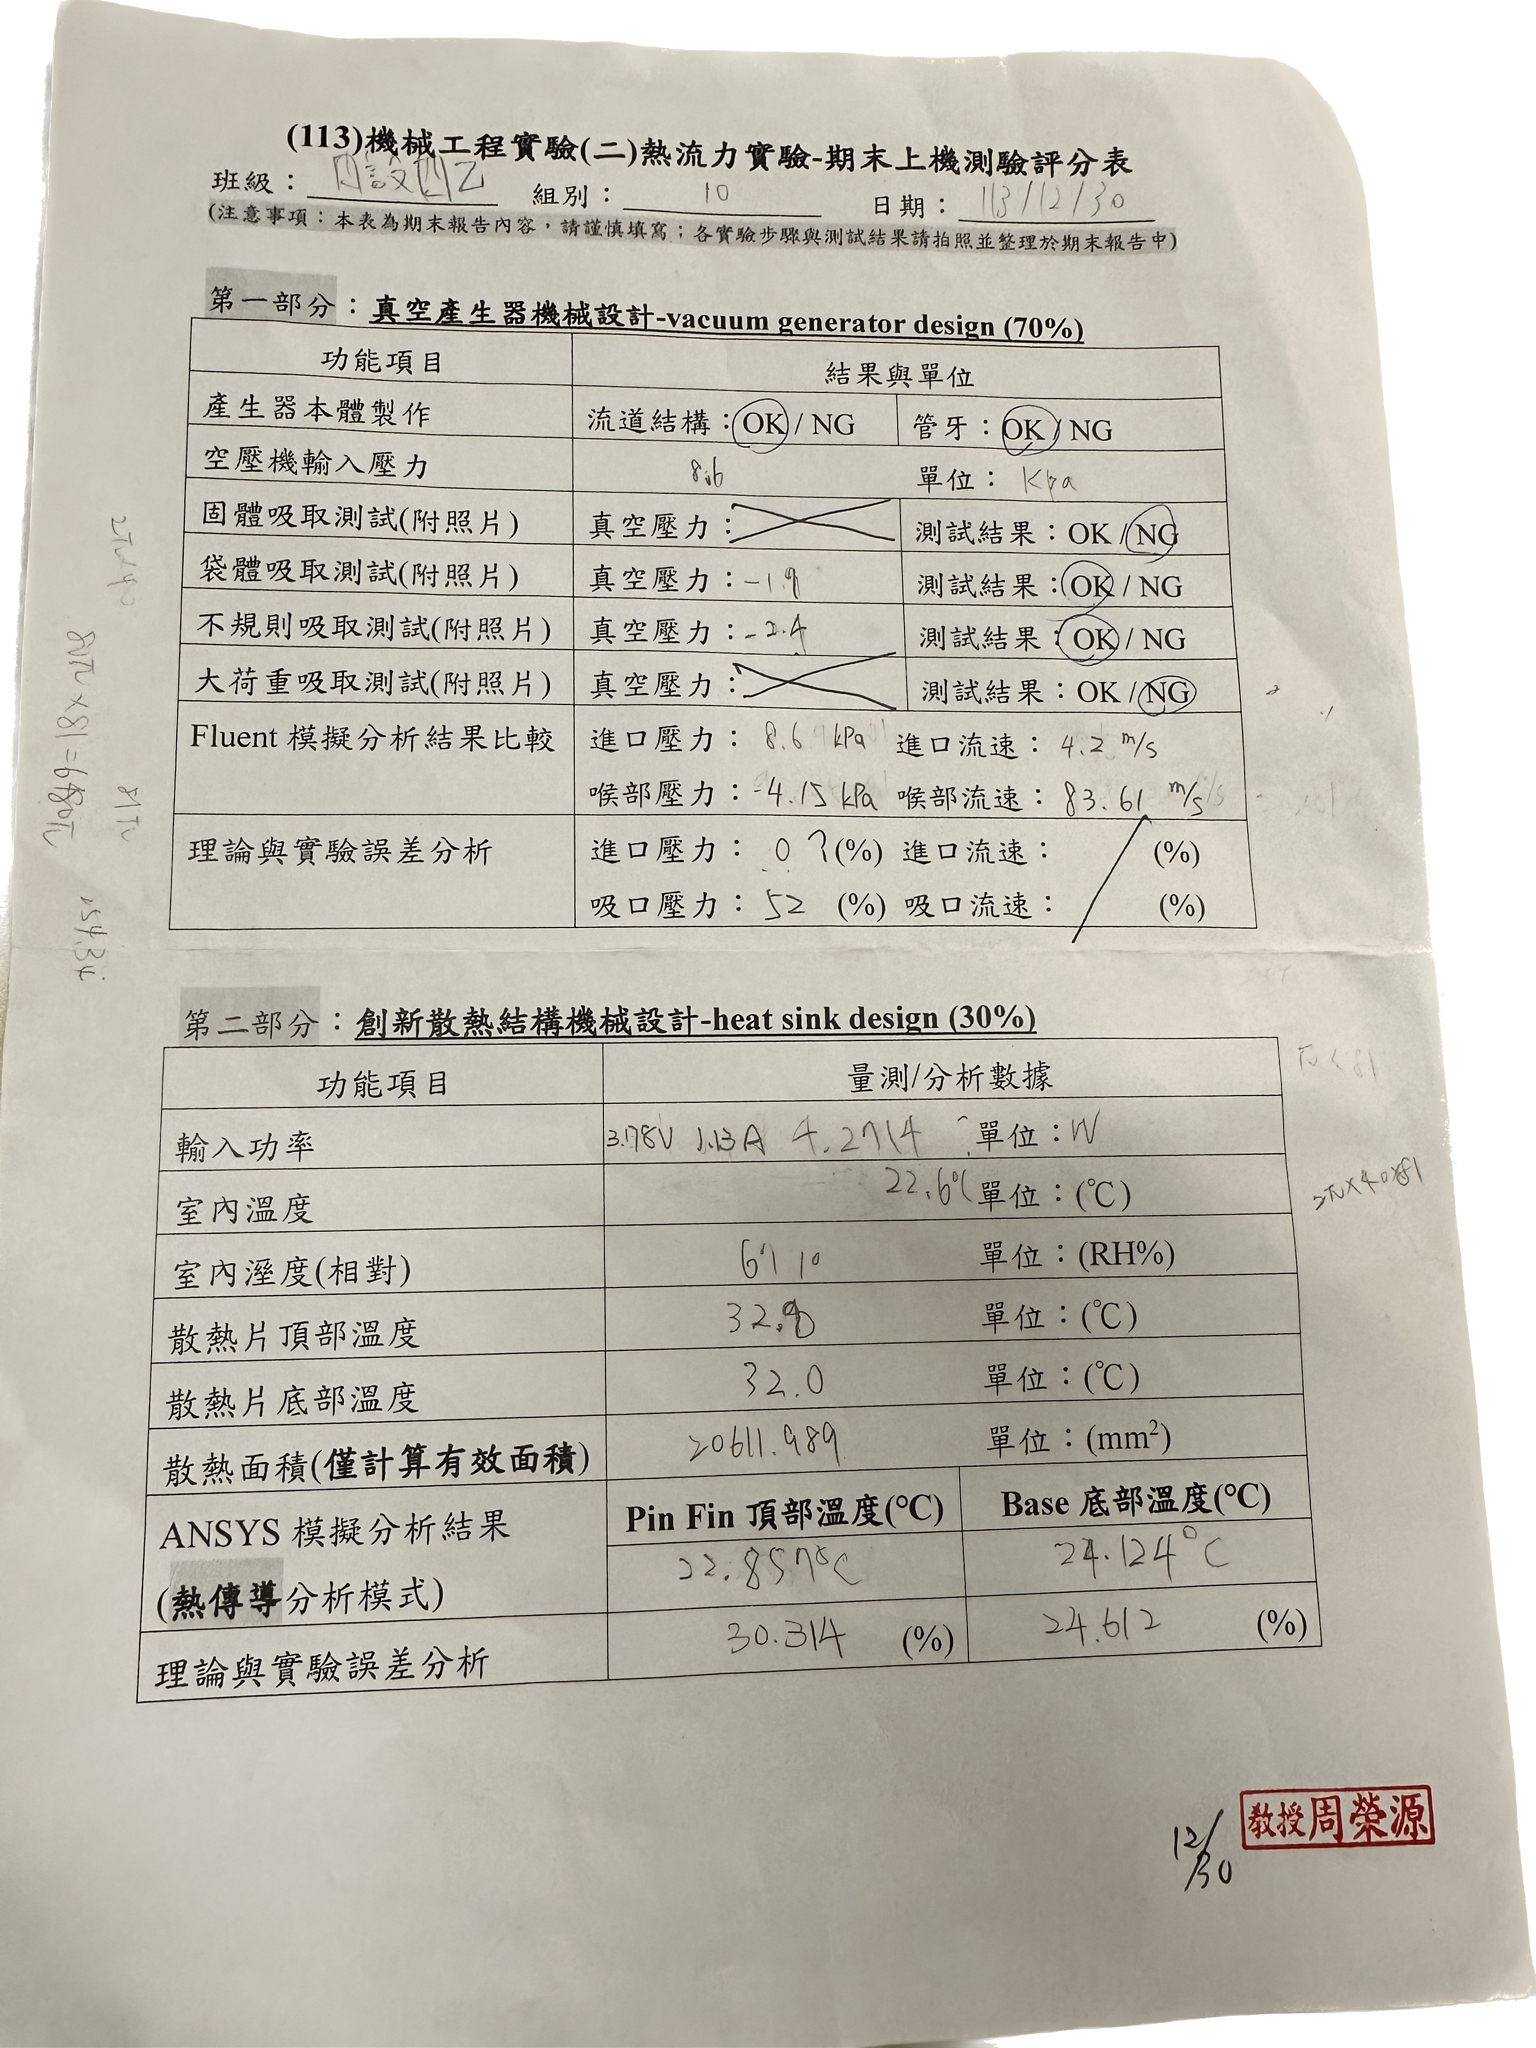 (113)機械工程實驗(二)熱流力實驗-期末上機測驗評分表
班級： 設四乙 組別： 10 日期： 113/12/30
(注意事項：本表為期末報告內容，請謹慎填寫；各實驗步驟與測試結果請拍照並整理於期末報告中)
第一部分：真空產生器機械設計-vacuum generator design (70%)
功能項目 結果與單位
產生器本體製作 流道結構：OK / NG 管牙：OK / NG
空壓機輸入壓力 8.6 單位： kpa
固體吸取測試(附照片) 真空壓力： 測試結果：OK / NG
袋體吸取測試(附照片) 真空壓力：-1.9 測試結果：OK / NG
不規則吸取測試(附照片) 真空壓力：-2.4 測試結果：OK / NG
大荷重吸取測試(附照片) 真空壓力： 測試結果：OK / NG
Fluent 模擬分析結果比較 進口壓力： 8.6 kPa 進口流速： 4.2 m/s
喉部壓力：-4.15 kPa 喉部流速：83.61 m/s
理論與實驗誤差分析 進口壓力： 0 ? (%) 進口流速： (%)
吸口壓力： 52 (%) 吸口流速： (%)
第二部分：創新散熱結構機械設計-heat sink design (30%)
功能項目 量測/分析數據
輸入功率 3.78V 1.13A 4.2714 單位：W
室內溫度 22.6℃ 單位：(℃)
室內溼度(相對) 單位：(RH%)
散熱片頂部溫度 單位：(℃)
散熱片底部溫度 32.0 單位：(℃)
散熱面積(僅計算有效面積) 20611.989 單位：(mm²)
ANSYS 模擬分析結果 Pin Fin 頂部溫度(℃) Base 底部溫度(℃)
(熱傳導分析模式) 22.857℃ 24.124℃
理論與實驗誤差分析 30.314 (%) 24.612 (%)
2π×40×81
81π
154.34
12/30
教授周榮源